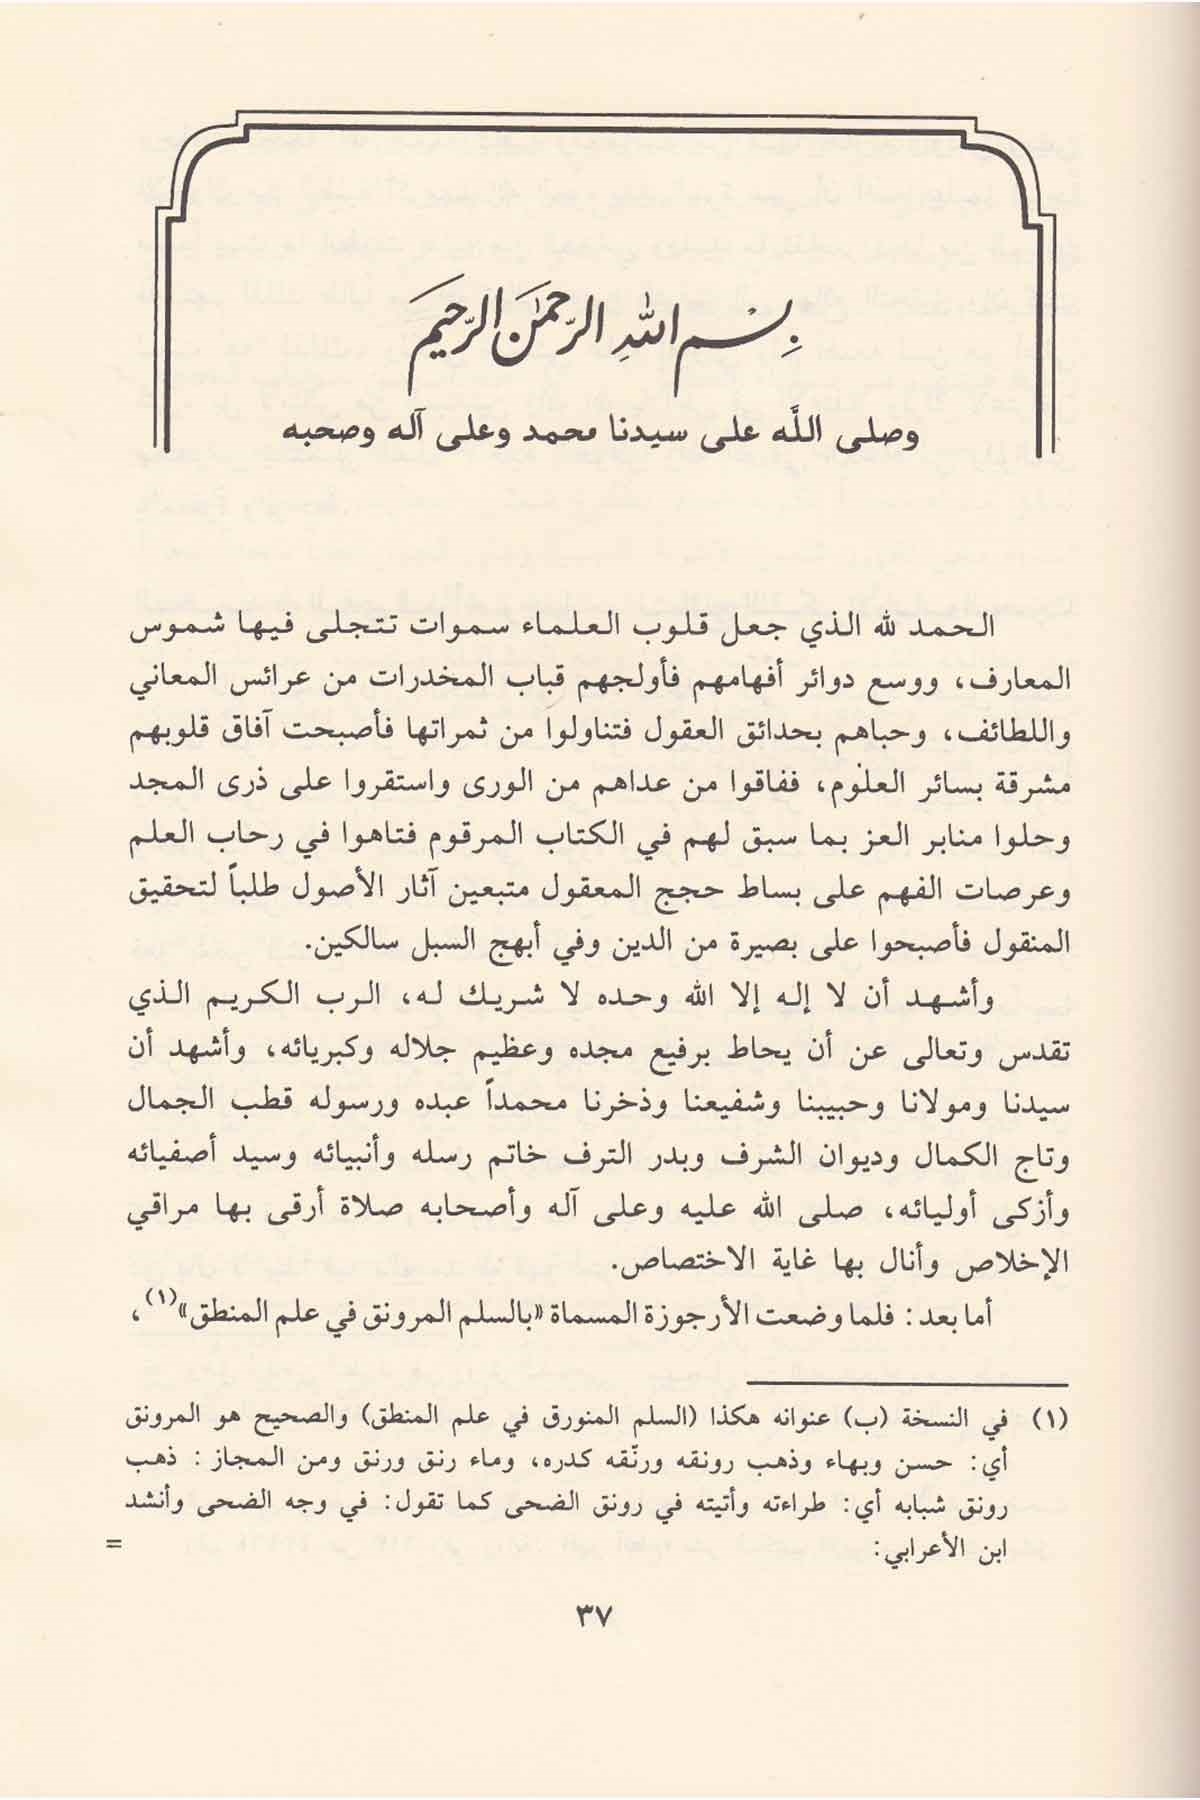 بِسْمِ اللهِ الرَّحْمٰنِ الرَّحِيمِ
وصلى اللَّه على سيدنا محمد وعلى آله وصحبه
الحمد لله الذي جعل قلوب العلماء سموات تتجلى فيها شموس
المعارف، ووسع دوائر أفهامهم فأولجهم قباب المخدرات من عرائس المعاني
واللطائف، وحباهم بحدائق العقول فتناولوا من ثمراتها فأصبحت آفاق قلوبهم
مشرقة بسائر العلوم، ففاقوا من عداهم من الورى واستقروا على ذرى المجد
وحلوا منابر العز بما سبق لهم في الكتاب المرقوم فتاهوا في رحاب العلم
وعرصات الفهم على بساط حجج المعقول متبعين آثار الأصول طلباً لتحقيق
المنقول فأصبحوا على بصيرة من الدين وفي أبهج السبل سالكين.
وأشهد أن لا إله إلا الله وحده لا شريك له، الرب الكريم الذي
تقدس وتعالى عن أن يحاط برفيع مجده وعظيم جلاله وكبريائه، وأشهد أن
سيدنا ومولانا وحبيبنا وشفيعنا وذخرنا محمداً عبده ورسوله قطب الجمال
وتاج الكمال وديوان الشرف وبدر الترف خاتم رسله وأنبيائه وسيد أصفيائه
وأزكى أوليائه، صلى الله عليه وعلى آله وأصحابه صلاة أرقى بها مراقي
الإخلاص وأنال بها غاية الاختصاص.
أما بعد: فلما وضعت الأرجوزة المسماة «بالسلم المرونق في علم المنطق»(١)،
(١) في النسخة (ب) عنوانه هكذا (السلم المنورق في علم المنطق) والصحيح هو المرونق
أي: حسن وبهاء وذهب رونقه ورنّقه كدره، وماء رنق ورنق ومن المجاز: ذهب
رونق شبابه أي: طراءته وأتيته في رونق الضحى كما تقول: في وجه الضحى وأنشد
ابن الأعرابي: =
٣٧